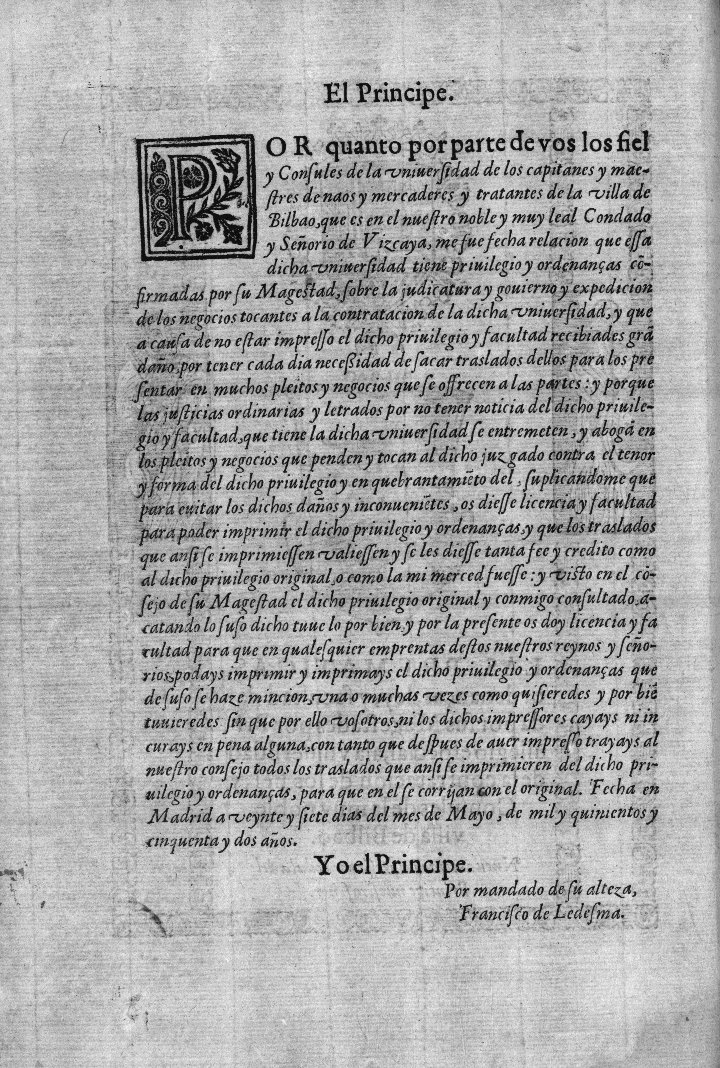 El Principe.
POR quanto por parte de vos los fiel
y Consules de la vniuersidad de los capitanes y mae-
stres de naos y mercaderes y tratantes de la villa de
Bilbao, que es en el nuestro noble y muy leal Condado
y Señorio de Vizcaya, me fue fecha relacion que essa
dicha vniuersidad tiene priuilegio y ordenanças cō-
firmadas por su Magestad, sobre la judicatura y gouierno y expedicion
de los negocios tocantes a la contratacion de la dicha vniuersidad, y que
a causa de no estar impresso el dicho priuilegio y facultad recibiades grā
daño, por tener cada dia necessidad de sacar traslados dellos para los pre
sentar en muchos pleitos y negocios que se offrecen a las partes: y porque
las justicias ordinarias y letrados por no tener noticia del dicho priuile-
gio y facultad, que tiene la dicha vniuersidad se entremeten, y abogā en
los pleitos y negocios que penden y tocan al dicho juzgado contra el tenor
y forma del dicho priuilegio y en quebrantamiēto del, suplicandome que
para euitar los dichos daños y inconueniētes, os diesse licencia y facultad
para poder imprimir el dicho priuilegio y ordenanças, y que los traslados
que ansi se imprimiessen valiessen y se les diesse tanta fee y credito como
al dicho priuilegio original, o como la mi merced fuesse: y visto en el cō-
sejo de su Magestad el dicho priuilegio original y conmigo consultado, a-
catando lo suso dicho tuue lo por bien, y por la presente os doy licencia y fa
cultad para que en qualesquier emprentas destos nuestros reynos y seño-
rios, podays imprimir y imprimays el dicho priuilegio y ordenanças que
de suso se haze mincion, vna o muchas vezes como quisieredes y por biē
tuuieredes sin que por ello vosotros, ni los dichos impressores cayays ni in
curays en pena alguna, con tanto que despues de auer impresso trayays al
nuestro consejo todos los traslados que ansi se imprimieren del dicho pri-
uilegio y ordenanças, para que en el se corrijan con el original. Fecha en
Madrid a veynte y siete dias del mes de Mayo, de mil y quinientos y
cinquenta y dos años.
Yo el Principe.
Por mandado de su alteza,
Francisco de Ledesma.